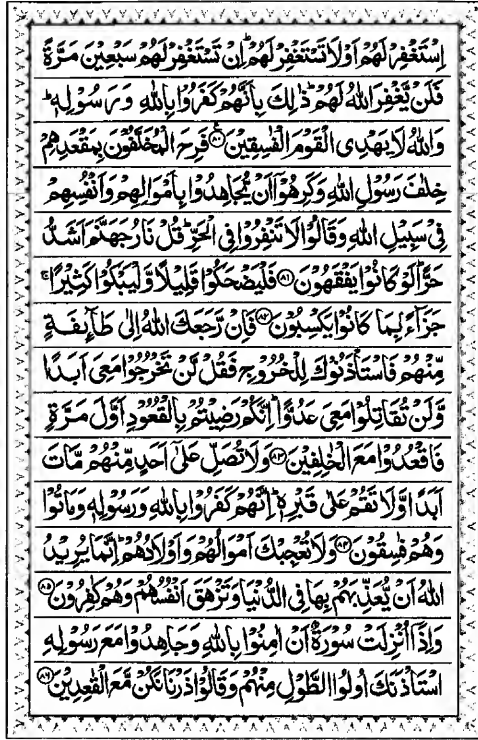 اِسْتَغْفِرْ لَهُمْ اَوْ لَا تَسْتَغْفِرْ لَهُمْ ؕ اِنْ تَسْتَغْفِرْ لَهُمْ سَبْعِيْنَ مَرَّةً
فَلَنْ يَّغْفِرَ اللّٰهُ لَهُمْ ؕ ذٰلِكَ بِاَنَّهُمْ كَفَرُوْا بِاللّٰهِ وَ رَسُوْلِهٖ ؕ
وَاللّٰهُ لَا يَهْدِى الْقَوْمَ الْفٰسِقِيْنَ ۟ۧ‏۸۰ فَرِحَ الْمُخَلَّفُوْنَ بِمَقْعَدِهِمْ
خِلٰفَ رَسُوْلِ اللّٰهِ وَكَرِهُوْۤا اَنْ يُّجَاهِدُوْا بِاَمْوَالِهِمْ وَاَنْفُسِهِمْ
فِىْ سَبِيْلِ اللّٰهِ وَقَالُوْا لَا تَنْفِرُوْا فِى الْحَرِّ ؕ قُلْ نَارُ جَهَنَّمَ اَشَدُّ
حَرًّا ؕ لَوْ كَانُوْا يَفْقَهُوْنَ ۸۱ فَلْيَضْحَكُوْا قَلِيْلًا وَّلْيَبْكُوْا كَثِيْرًا ۚ
جَزَآءًۢ بِمَا كَانُوْا يَكْسِبُوْنَ ۸۲ فَاِنْ رَّجَعَكَ اللّٰهُ اِلٰى طَآئِفَةٍ
مِّنْهُمْ فَاسْتَاْذَنُوْكَ لِلْخُرُوْجِ فَقُلْ لَّنْ تَخْرُجُوْا مَعِىَ اَبَدًا
وَّلَنْ تُقَاتِلُوْا مَعِىَ عَدُوًّا ؕ اِنَّكُمْ رَضِيْتُمْ بِالْقُعُوْدِ اَوَّلَ مَرَّةٍ
فَاقْعُدُوْا مَعَ الْخٰلِفِيْنَ ۸۳ وَلَا تُصَلِّ عَلٰٓى اَحَدٍ مِّنْهُمْ مَّاتَ
اَبَدًا وَّلَا تَقُمْ عَلٰى قَبْرِهٖ ؕ اِنَّهُمْ كَفَرُوْا بِاللّٰهِ وَ رَسُوْلِهٖ وَمَاتُوْا
وَهُمْ فٰسِقُوْنَ ۸۴ وَلَا تُعْجِبْكَ اَمْوَالُهُمْ وَاَوْلَادُهُمْ ؕ اِنَّمَا يُرِيْدُ
اللّٰهُ اَنْ يُّعَذِّبَهُمْ بِهَا فِى الدُّنْيَا وَتَزْهَقَ اَنْفُسُهُمْ وَهُمْ كٰفِرُوْنَ ۸۵
وَاِذَاۤ اُنْزِلَتْ سُوْرَةٌ اَنْ اٰمِنُوْا بِاللّٰهِ وَجَاهِدُوْا مَعَ رَسُوْلِهِ
اسْتَاْذَنَكَ اُولُوا الطَّوْلِ مِنْهُمْ وَقَالُوْا ذَرْنَا نَكُنْ مَّعَ الْقٰعِدِيْنَ ۸۶